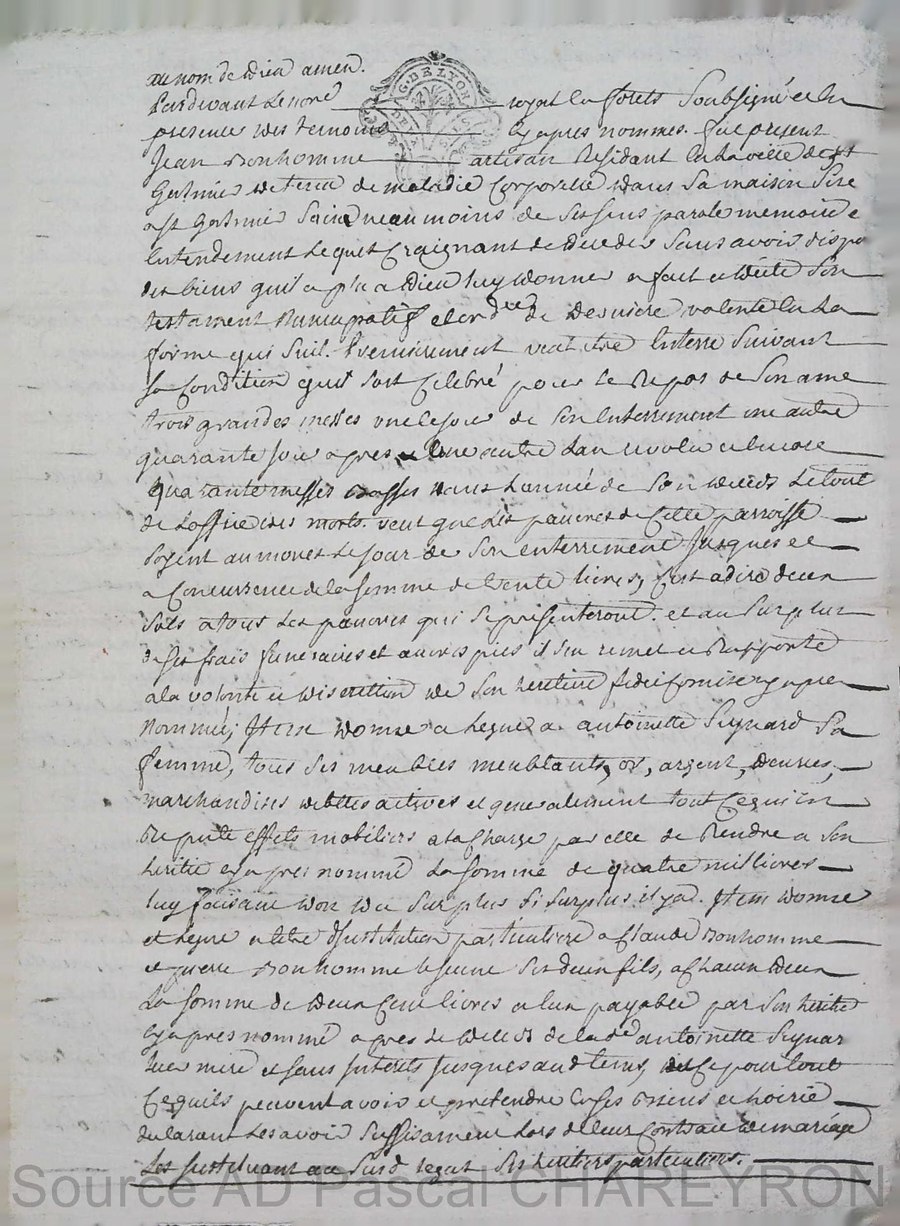 au nom de dieu amen.
Pardevant le no.re royal en forets Soubsigné et en
presence des temoins cy apres nommés. fut present
Jean Bonhomme artisan Residant en la ville de St
Galmier detenu de maladie Corporelle dans Sa maison Size
a St Galmier Sain neanmoins de Ses sens parole memoire e
Entendement Lequel Craignant de deceder Sans avoir dispo
des biens qu'il a plu a dieu luy donner a fait et dicté Son
testament nuncupatif et ord.ce de derniere volonté en la
forme qui Suit. Premierement veut etre Enterré Suivant
Sa Condition qu'il soit Celebré pour le Repos de Son ame
trois grandes messes une le jour de Son Enterrement une autre
quarante jour apres et une autre l'an revolu et Encore
quarante messes Basses dans L'année de Son deceds Le tout
de L'office des morts. veut que Les pauvres de Cette parroisse
Soyent aumonés Le jour de Son enterrement Jusques et
a Concurrence de la Somme de trente livres, C'est a dire deux
Sols a tous Les pauvres qui Se presenteront. et au Surplus
de Ses frais funeraires et œuvres pies il S'en remet et Rapporte
a la volonté et discretion de Son heritier fideicommise cy apres
Nommé, Item donne et legue a antoinette Seynard Sa
femme, tous Ses meubles meublants, or, argent, denrées,
marchandises debtes actives et generalement tout Ce qui En
Repute effets mobiliers a la Charge par elle de Rendre a Son
heritier cy apres nommé La Somme de quatre mil livres
Luy faisant don du Surplus Si Surplus il y a. Item donne
et legue a titre d'Institution particuliere a Claude Bonhomme
et pierre Bonhomme le jeune Ses deux fils, a Chacun deux
La Somme de deux Cent livres a Eux payable par Son heritier
cy apres nommé apres Le deceds de la de antoinette Seynar
Leur mere et Sans Interets Jusques aud tems, et Ce pour tout
Ce qu'ils peuvent avoir et pretendre En Ses Biens et hoirie
declarant Les avoir Suffisament Lors de leur Contrat de mariage
Les Instituant au Susd legat Ses heritiers particuliers.
Source AD Pascal CHAREYRON